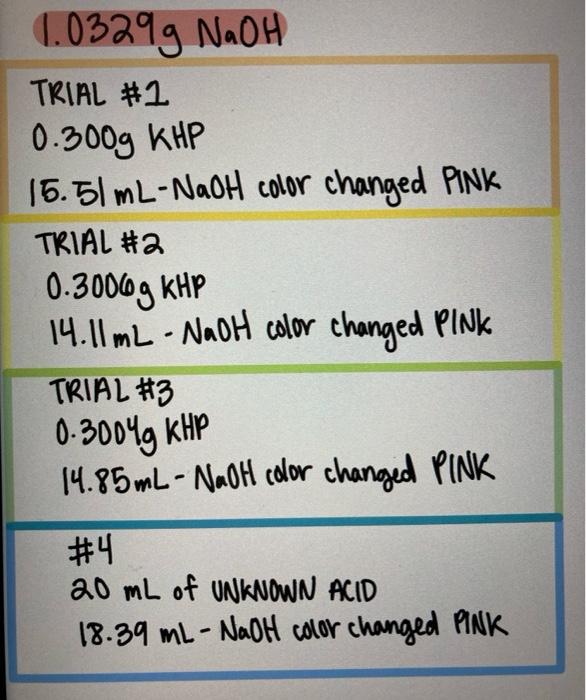 1.0329g NaOH
TRIAL #1
0.300g KHP
15.51 mL-NaOH color changed PINK
TRIAL #2
0.3006g KHP
14.11 mL - NaOH color changed PINK
TRIAL #3
0.3004g KHP
14.85 mL - NaOH color changed PINK
#4
20 mL of UNKNOWN ACID
18.39 mL - NaOH color changed PINK